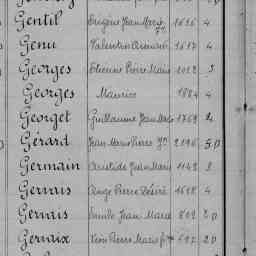 Gentil Eugène Jean Marie 1616 4
Genu Valentin Armand 1617 4
Georges Etienne Pierre Marie 1012 3
Georges Maurice 1884 4
Georget Guillaume Jean Marie 1769 4
Gérard Jean Marie Pierre 2196 5.0
Germain Aristide Jean Marie 1142 3
Gervais Ange Pierre Désiré 1618 4
Gervais Emile Jean Marie 802 2.0
Gervaix Pierre Marie 597 2.0